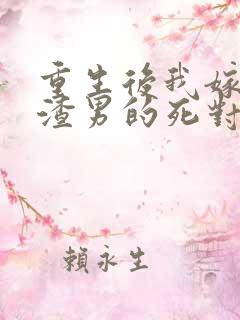 重生後我嫁
渣男的死對
賴永生